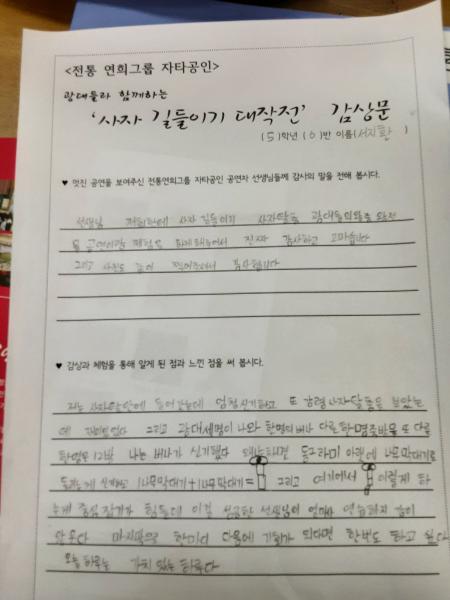 <전통 연희그룹 자타공인>
광대들과 함께하는
'사자 길들이기 대작전' 감상문
(5)학년 (6)반 이름(서지환)
♥ 멋진 공연을 보여주신 전통연희그룹 자타공인 공연자 선생님들께 감사의 말을 전해 봅시다.
선생님 저희반에 사자 길들이기 사자탈춤 광대들의
공연이랑 체험을 하게해주어서 진짜 감사하고 고마습니다
그리고 사진도 많이 찍어주셔서 감사합니다
♥ 감상과 체험을 통해 알게 된 점과 느낀 점을 써 봅시다.
저는 사자탈안에 들어갔는데 엄청신기하고 또 강령사자탈춤을 보았는
데 재미있었다 그리고 광대세명이 나와 한명의 버나 다른한명죽방울 또 다른
한명은 12발 나는 버나가 신기했다 왜냐하면 동그라미 아래에 나무막대기로
돌리는게 신기하고 1나무막대기+1나무막대기= 그리고 여기에서 이렇게 하
는게 중심잡기가 힘든데 이걸 성공한 선생님이 얼마나 연습하지 감이
안온다 마지막으로 한마디 다음에 기회가 된다면 한번도 하고 싶다
오늘 하루는 가치 있는 하루다